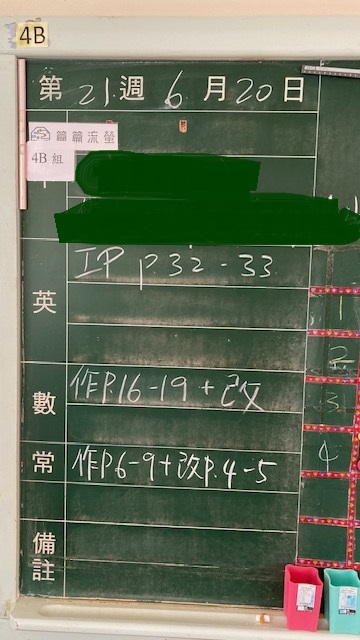 4B
第 21 週 6 月 20 日
篇篇流螢
4B 組
英 IP p.32-33
數 作P.16-19+改
常 作P.6-9+改P.4-5
備註
1
2
3
4